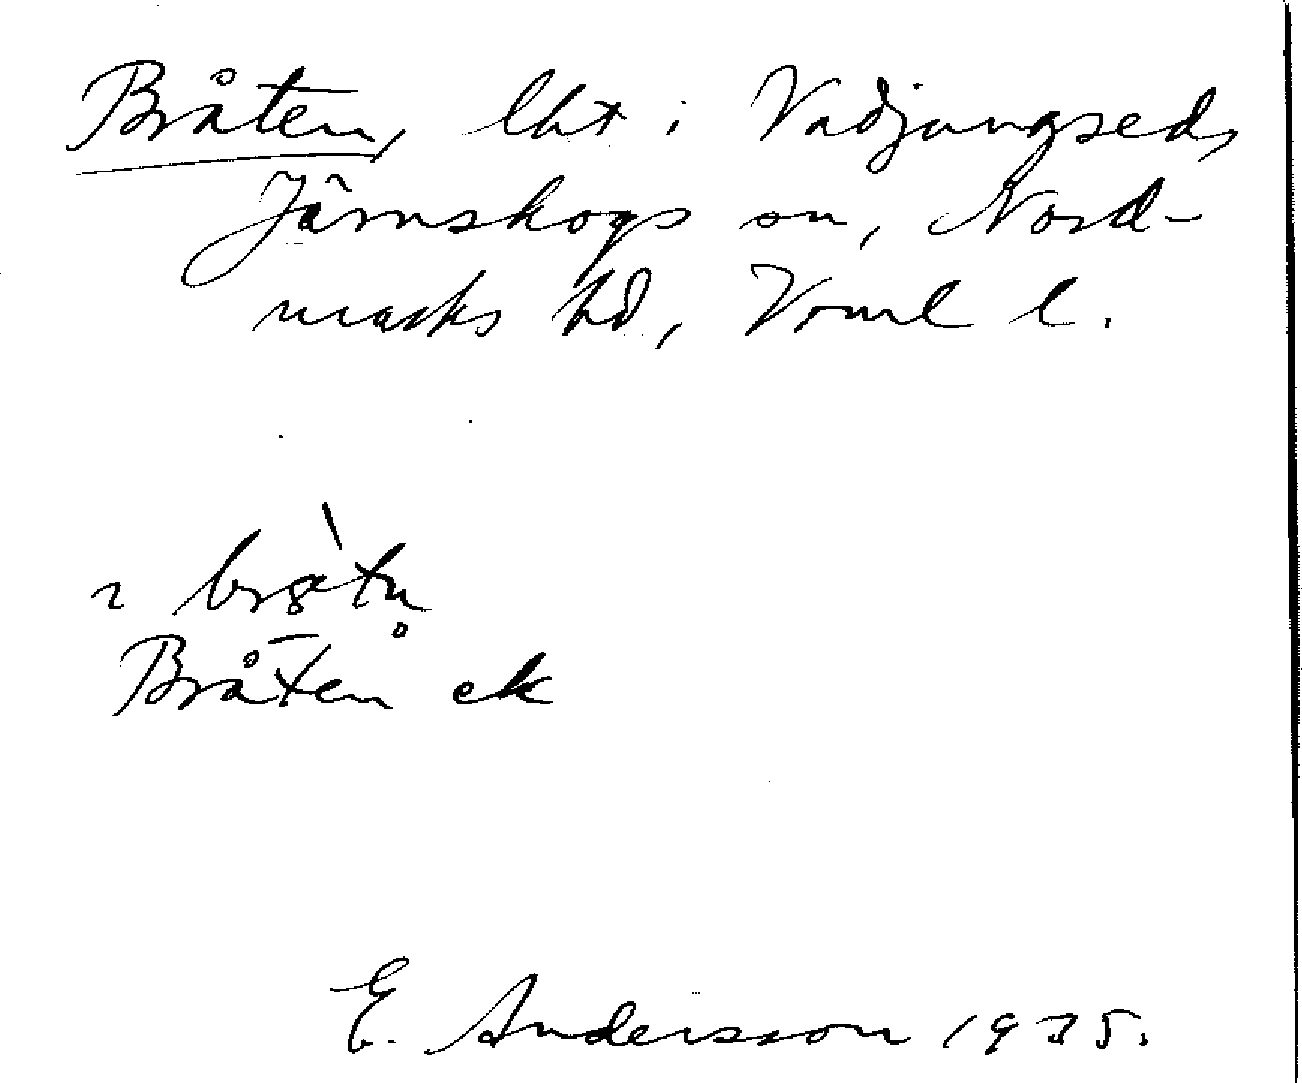 Bråten, lht i Vadjungsed,
Järnskogs sn, Nord-
marks hd, Vrml l.
bråtn̥
Bråten ek
E. Andersson 1935.